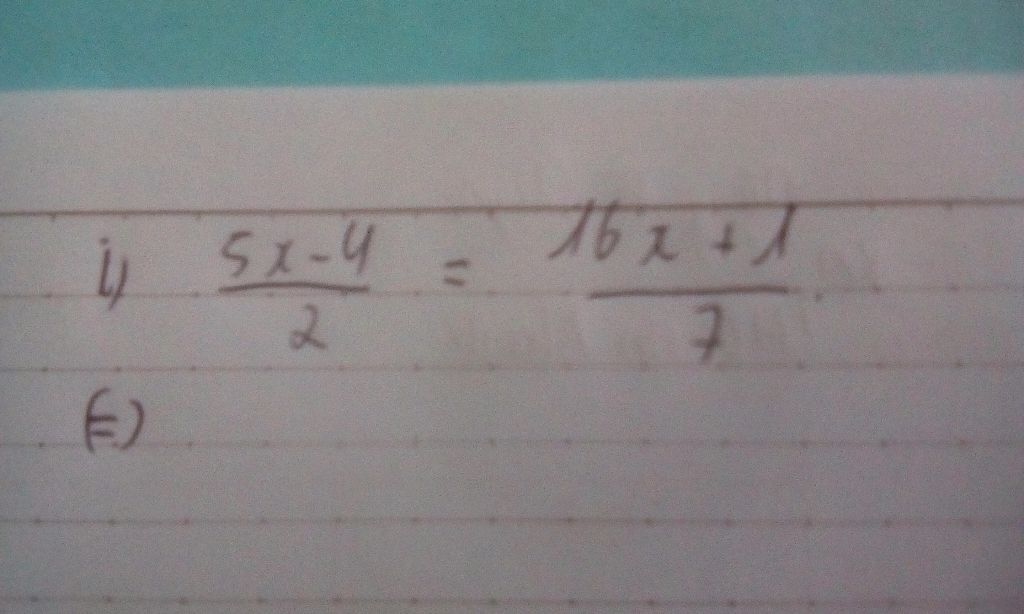 i) 5x-4/2 = 16x+1/7
(=)